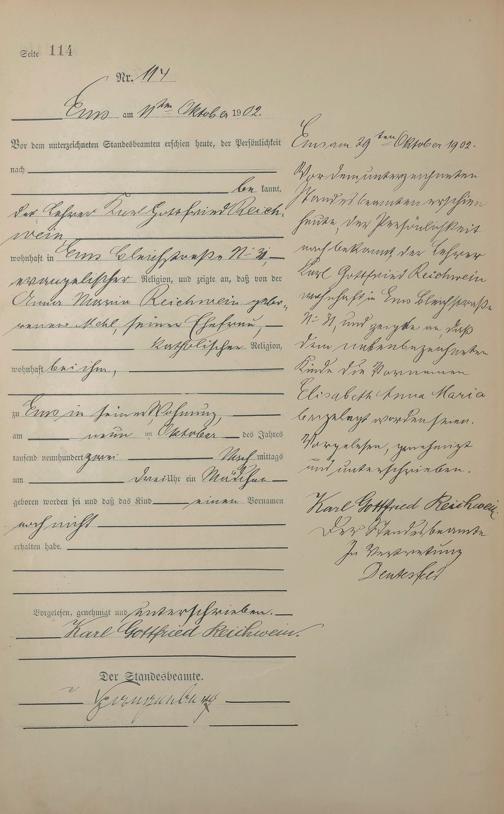 Seite 114
Nr. 114
Ems am 11ten Oktober 1902.
Vor dem unterzeichneten Standesbeamten erschien heute, der Persönlichkeit
nach
be kannt,
der Lehrer Karl Gottfried Reich-
wein,
wohnhaft in Ems Bleichstraße No 31,
evangelischer Religion, und zeigte an, daß von der
Anna Maria Reichwein gebo-
renen Mehl, seiner Ehefrau,
katholischer Religion,
wohnhaft bei ihm,
zu Ems, in seiner Wohnung,
am neun ten Oktober des Jahres
tausend neunhundert zwei Nach mittags
um drei Uhr ein Mädchen
geboren worden sei und daß das Kind einen Vornamen
noch nicht
erhalten habe.
Vorgelesen, genehmigt und unterschrieben.
Karl Gottfried Reichwein.
Der Standesbeamte.
Ems, am 29ten Oktober 1902.
Vor dem unterzeichneten
Standesbeamten erschien
heute, der Persönlichkeit
nach bekannt, der Lehrer
Karl Gottfried Reichwein
wohnhaft in Ems Bleichstraße
No 31, und zeigte an, daß
dem nebenbezeichneten
Kinde die Vornamen
Elisabeth Anna Maria
beigelegt worden seien.
Vorgelesen, genehmigt
und unterschrieben.
Karl Gottfried Reichwein.
Der Standesbeamte
In Vertretung